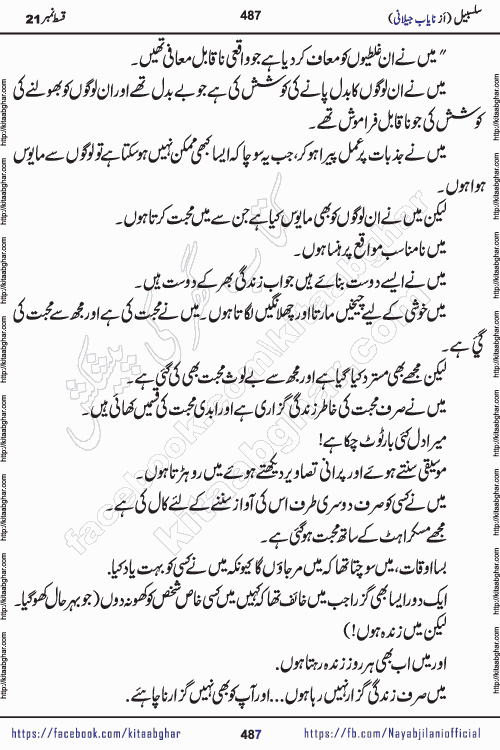 سلسبیل (از نایاب جیلانی)
487
قسط نمبر 21
"میں نے ان غلطیوں کو معاف کر دیا ہے جو واقعی ناقابل معافی تھیں۔
میں نے ان لوگوں کا بدل پانے کی کوشش کی ہے جو بے بدل تھے اور ان لوگوں کو بھولنے کی
کوشش کی جو ناقابل فراموش تھے۔
میں نے جذبات پر عمل پیرا ہو کر، جب یہ سوچا کہ ایسا کبھی ممکن نہیں ہو سکتا ہے تو لوگوں سے مایوس
ہوا ہوں۔
لیکن میں نے ان لوگوں کو بھی مایوس کیا ہے جن سے میں محبت کرتا ہوں۔
میں نامناسب مواقع پر ہنسا ہوں۔
میں نے ایسے دوست بنائے ہیں جو اب زندگی بھر کے دوست ہیں۔
میں خوشی کے لیے چیخیں مارتا اور چھلانگیں لگاتا ہوں۔ میں نے محبت کی ہے اور مجھ سے محبت کی
گئی ہے۔
لیکن مجھے بھی مسترد کیا گیا ہے اور مجھ سے بے لوث محبت بھی کی گئی ہے۔
میں نے صرف محبت کی خاطر زندگی گزاری ہے اور ابدی محبت کی قسمیں کھائی ہیں۔
میرا دل کئی بار ٹوٹ چکا ہے!
موسیقی سنتے ہوئے اور پرانی تصاویر دیکھتے ہوئے میں رو پڑتا ہوں۔
میں نے کسی کو صرف دوسری طرف اس کی آواز سننے کے لئے کال کی ہے۔
مجھے مسکراہٹ کے ساتھ محبت ہو گئی ہے۔
بسا اوقات، میں سوچتا تھا کہ میں مر جاؤں گا کیونکہ میں نے کسی کو بہت یاد کیا.
ایک دور ایسا بھی گزرا جب میں خائف تھا کہ کہیں میں کسی خاص شخص کو کھو نہ دوں (جو بہرحال کھو گیا۔
لیکن میں زندہ ہوں!)
اور میں اب بھی ہر روز زندہ رہتا ہوں.
میں صرف زندگی گزار نہیں رہا ہوں... اور آپ کو بھی نہیں گزارنا چاہئے۔
https://facebook.com/kitaabghar
487
https://fb.com/Nayabjilaniofficial
http://kitaabghar.com
کتاب گھر کی پیشکش
facebook.com/kitaabghar
kitaabghar.com